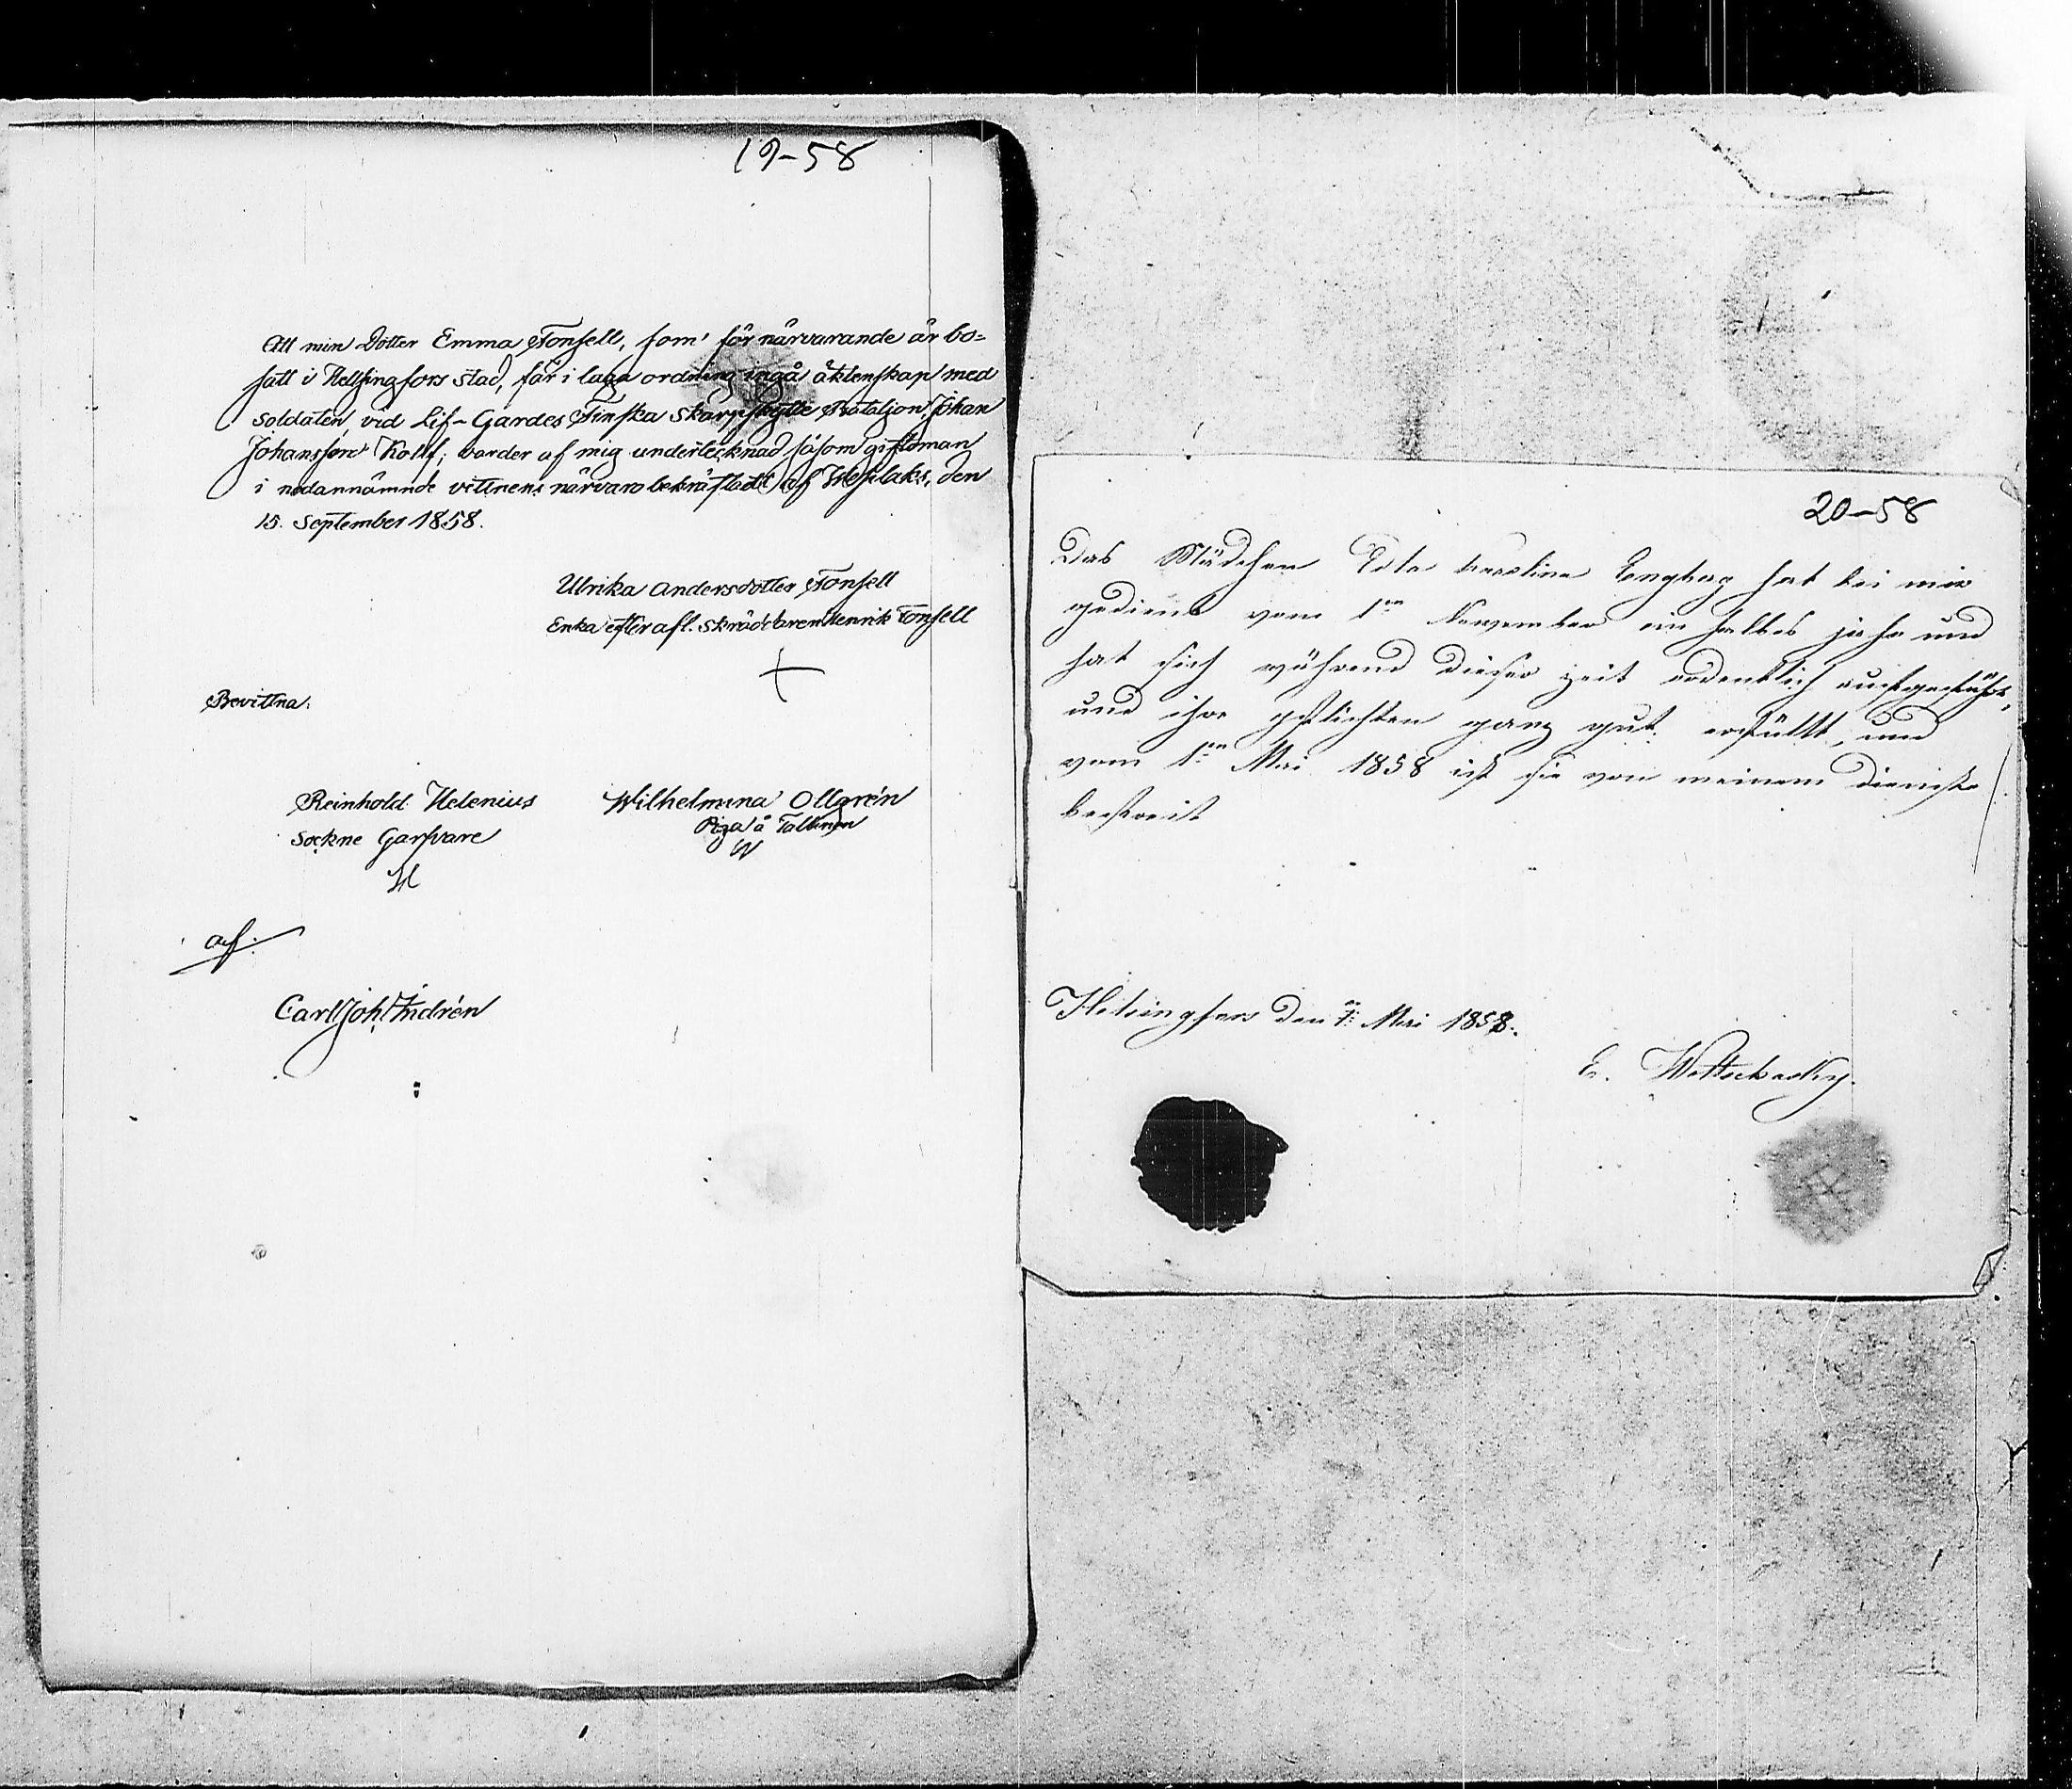 19-58
Att min Dotter Emma Tonsell, som för närvarande är bo-
satt i Helsingfors Stad, får i laga ordning ingå äktenskap med
Soldaten, vid Lif-Gardes Finska Skarpskytte Bataljon, Johan
Johansson Kolf; varder af mig undertecknad såsom giftoman
i nedannämnde vittnens närvaro bekräftadt af Westlaks, den
15. September 1858.
Ulrika Andersdotter Tonsell
Enka efter afl. Skräddaren Henrik Tonsell
Bevittna:
Reinhold Helenius Wilhelmina Ollgrén
Sockne Garfvare Piga å Tallinen
H W
af:
Carl Joh. Andrén
20-58
Das Mädchen Eda Carolina Engberg hat bei mir
gedient vom 1en November ein halbes jahr und
hat sich während dieser zeit ordentlich aufgeführt,
und ihre pflichten ganz gut erfüllt, und
vom 1en Mai 1858 ist sie von meinem Dienste
befreit
Helsingfors den 1en Mai 1858.
E.